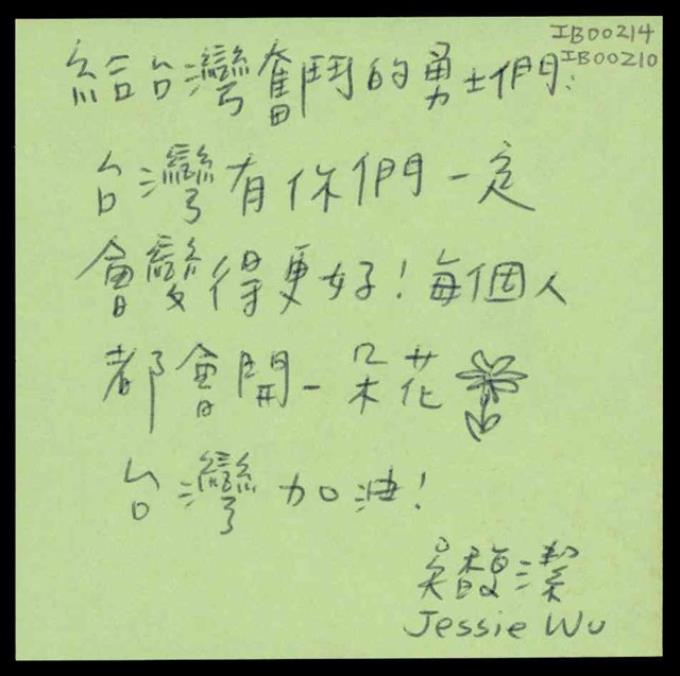 IB00214
IB00210
給台灣奮鬥的勇士們:
台灣有你們一定
會變得更好!每個人
都會開一朵花
台灣加油!
吳馥潔
Jessie Wu